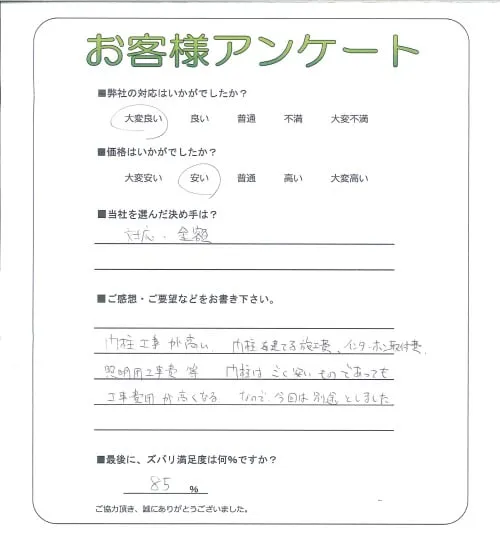 お客様アンケート
■弊社の対応はいかがでしたか?
大変良い 良い 普通 不満 大変不満
■価格はいかがでしたか?
大変安い 安い 普通 高い 大変高い
■当社を選んだ決め手は?
対応・金額
■ご感想・ご要望などをお書き下さい。
門柱工事が高い、門柱を建てる施工費、インターホン取付費、
照明用工事費 等 門柱はごく安いものであっても
工事費用が高くなる なので、今回は別途としました
■最後に、ズバリ満足度は何%ですか?
85 %
ご協力頂き、誠にありがとうございました。